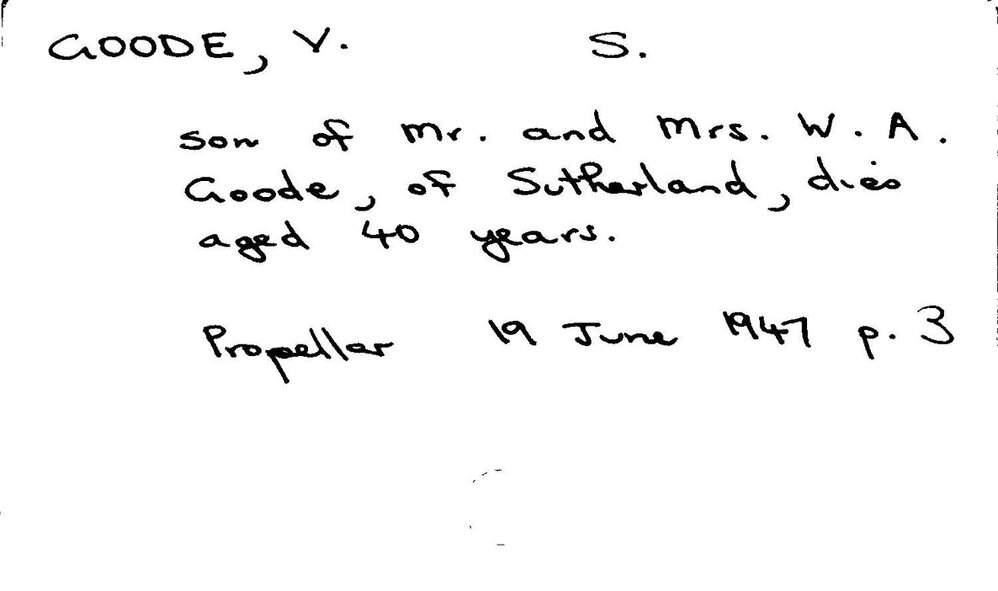 GOODE, V. S.
son of Mr. and Mrs. W. A.
Goode, of Sutherland, dies
aged 40 years.
Propellar 19 June 1947 p. 3